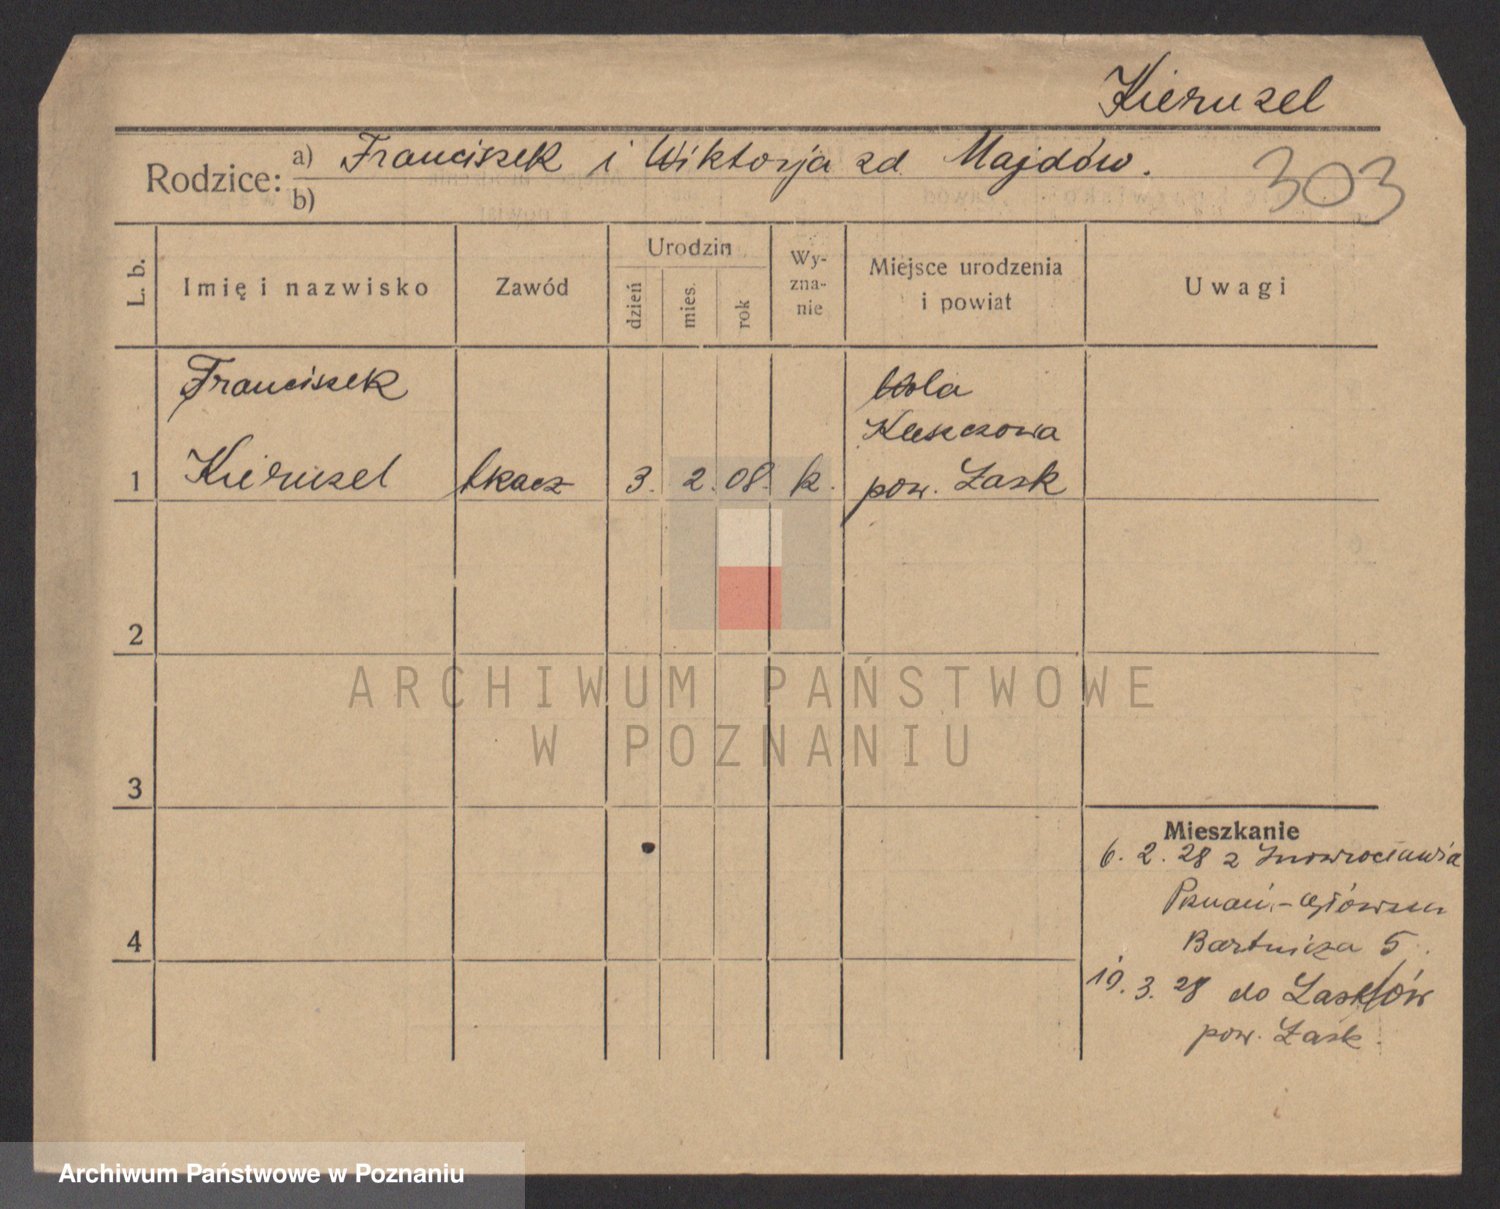 Kieruzel
Rodzice: a) Franciszek i Wiktorja zd. Majdów.
b)
303
L. b.
Imię i nazwisko
Zawód
Urodzin
dzień
mies.
rok
Wy-
zna-
nie
Miejsce urodzenia
i powiat
Uwagi
Franciszek
Wola
Kleszczowa
1 Kieruzel tkacz 3. 2. 08. k. pow. Łask
2
3
4
Mieszkanie
6. 2. 28 z Inowrocławia
Poznań-Główna
Bartnicza 5.
19. 3. 28 do
pow. Łask.
ARCHIWUM PAŃSTWOWE
W POZNANIU
Archiwum Państwowe w Poznaniu